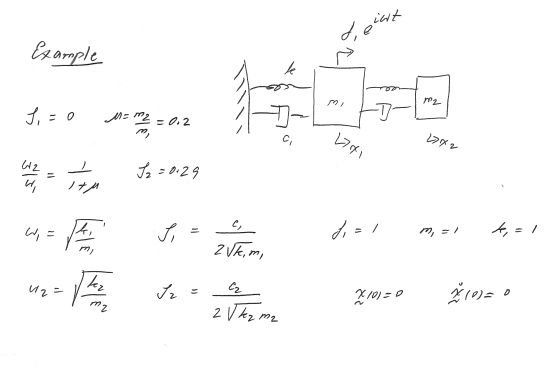 Example
f₁ e^{iωt}
k
m₁
m₂
c₁
↳x₁
↳x₂
ζ₁ = 0 μ = m₂/m₁ = 0.2
ω₂/ω₁ = 1/(1+μ) ζ₂ = 0.29
ω₁ = √(k₁/m₁) ζ₁ = c₁/(2√k₁m₁) f₁ = 1 m₁ = 1 k₁ = 1
ω₂ = √(k₂/m₂) ζ₂ = c₂/(2√k₂m₂) x(0) = 0 ẋ(0) = 0